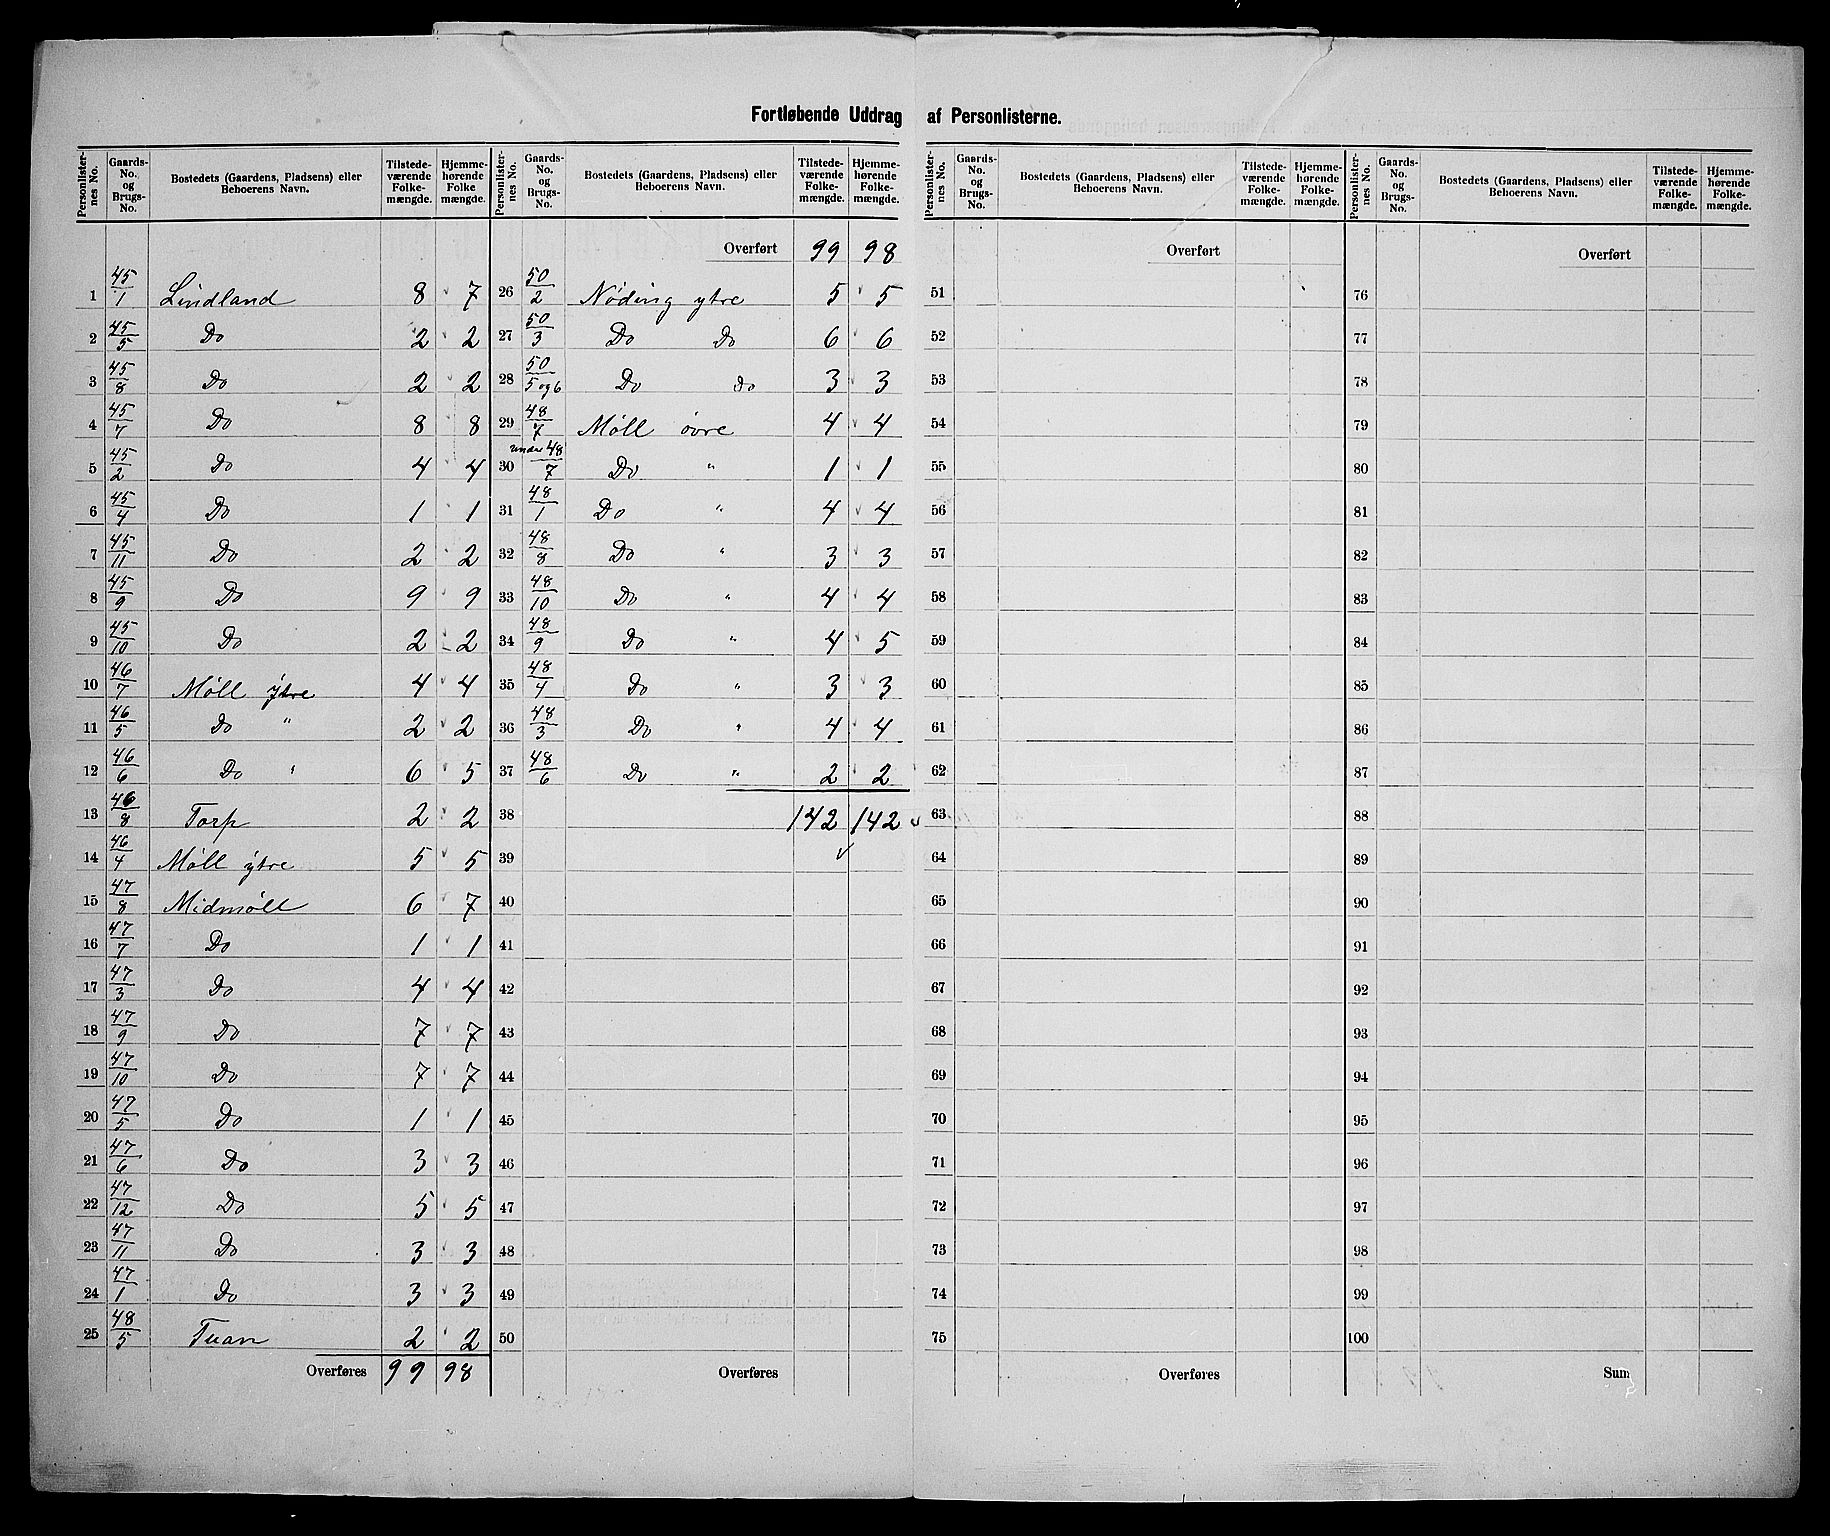 Fortløbende Uddrag af Personlisterne.
Personlisternes No. | Gaards-No. og Brugs-No. | Bostedets (Gaardens, Pladsens) eller Beboerens Navn. | Tilstedeværende Folkemængde. | Hjemmehørende Folkemængde.
1 | 45/1 | Lindland | 8 | 7
2 | 45/5 | Do | 2 | 2
3 | 45/8 | Do | 2 | 2
4 | 45/7 | Do | 8 | 8
5 | 45/2 | Do | 4 | 4
6 | 45/4 | Do | 1 | 1
7 | 45/11 | Do | 2 | 2
8 | 45/9 | Do | 9 | 9
9 | 45/10 | Do | 2 | 2
10 | 46/7 | Møll ytre | 4 | 4
11 | 46/5 | Do " | 2 | 2
12 | 46/6 | Do " | 6 | 5
13 | 46/8 | Torp | 2 | 2
14 | 46/4 | Møll ytre | 5 | 5
15 | 47/8 | Midmøll | 6 | 7
16 | 47/7 | Do | 1 | 1
17 | 47/3 | Do | 4 | 4
18 | 47/9 | Do | 7 | 7
19 | 47/10 | Do | 7 | 7
20 | 47/5 | Do | 1 | 1
21 | 47/6 | Do | 3 | 3
22 | 47/12 | Do | 5 | 5
23 | 47/11 | Do | 3 | 3
24 | 47/1 | Do | 3 | 3
25 | 48/5 | Tuan | 2 | 2
Overføres | 99 | 98
Personlisternes No. | Gaards-No. og Brugs-No. | Bostedets (Gaardens, Pladsens) eller Beboerens Navn. | Tilstedeværende Folkemængde. | Hjemmehørende Folkemængde.
Overført | 99 | 98
26 | 50/2 | Nøding ytre | 5 | 5
27 | 50/3 | Do Do | 6 | 6
28 | 50/5 og 6 | Do do | 3 | 3
29 | 48/7 | Møll øvre | 4 | 4
30 | under 48/7 | Do " | 1 | 1
31 | 48/1 | Do " | 4 | 4
32 | 48/8 | Do " | 3 | 3
33 | 48/10 | Do " | 4 | 4
34 | 48/9 | Do " | 4 | 5
35 | 48/4 | Do " | 3 | 3
36 | 48/3 | Do " | 4 | 4
37 | 48/6 | Do " | 2 | 2
38 | 142 | 142
39
40
41
42
43
44
45
46
47
48
49
50
Overføres
Personlisternes No. | Gaards-No. og Brugs-No. | Bostedets (Gaardens, Pladsens) eller Beboerens Navn. | Tilstedeværende Folkemængde. | Hjemmehørende Folkemængde.
Overført
51
52
53
54
55
56
57
58
59
60
61
62
63
64
65
66
67
68
69
70
71
72
73
74
75
Overføres
Personlisternes No. | Gaards-No. og Brugs-No. | Bostedets (Gaardens, Pladsens) eller Beboerens Navn. | Tilstedeværende Folkemængde. | Hjemmehørende Folkemængde.
Overført
76
77
78
79
80
81
82
83
84
85
86
87
88
89
90
91
92
93
94
95
96
97
98
99
100
Sum